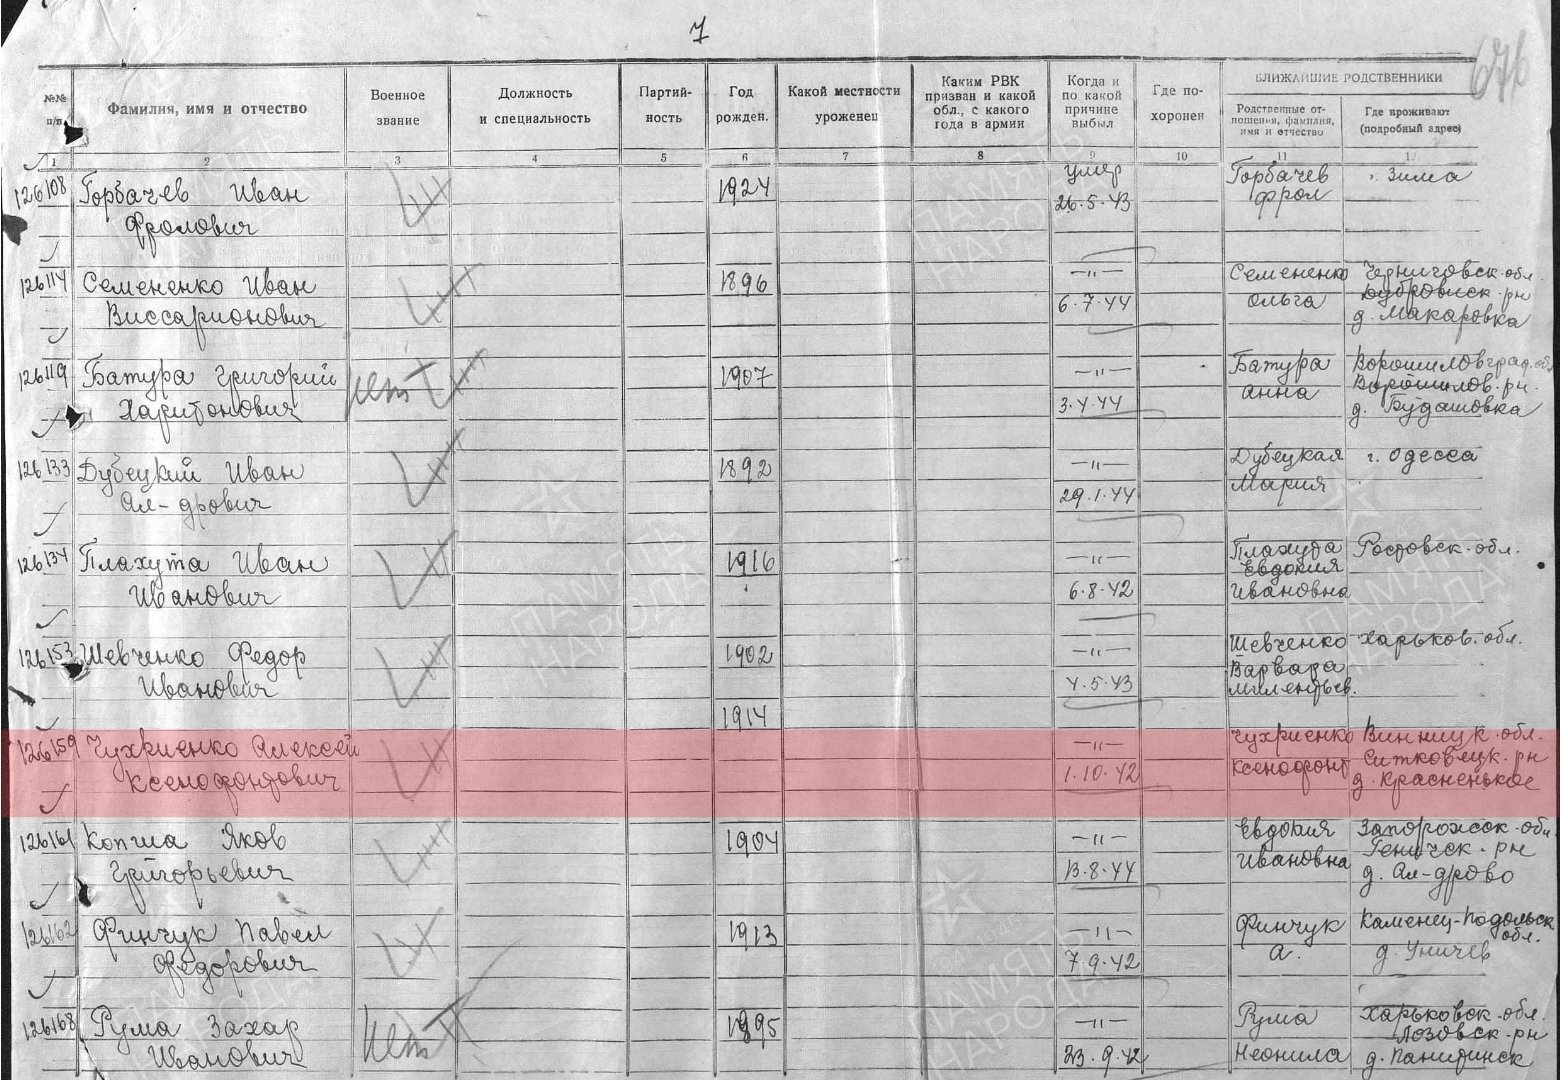 7
676
№№ п/п
Фамилия, имя и отчество
Военное звание
Должность и специальность
Партий-ность
Год рожден.
Какой местности уроженец
Каким РВК призван и какой обл., с какого года в армии
Когда и по какой причине выбыл
Где по-хоронен
БЛИЖАЙШИЕ РОДСТВЕННИКИ
Родственные от-ношения, фамилия, имя и отчество
Где проживают (подробный адрес)
1 2 3 4 5 6 7 8 9 10 11 12
126108 Горбачев Иван 1924 умер Горбачев г. Зима
Фролович 26.5.43 Фрол
126114 Семененко Иван 1896 —"— Семененко Черниговск. обл.
Виссарионович 6.7.44 Ольга Дубровиск. рн
д. Макаровка
126119 Батура Григорий нет 1907 —"— Батура Ворошиловград. обл.
Харитонович 3.4.44 Анна Ворошилов. рн.
д. Будашовка
126133 Дубецкий Иван 1892 —"— Дубецкая г. Одесса
Ал-дрович 29.1.44 Мария
126134 Плахута Иван 1916 —"— Плахуда Ростовск. обл.
Евдокия
Иванович 6.8.42 Ивановна
126153 Шевченко Федор 1902 —"— Шевченко Харьков. обл.
Варвара
Иванович 4.5.43
1914
126159 Чухриенко Алексей —"— Чухриенко Винницк. обл.
Ксенофонтович 1.10.42 Ксенофонт Ситковецк. рн
д. Красненькое
126161 Копша Яков 1904 —"— Евдокия Запорожск. обл.
Григорьевич 13.8.44 Ивановна Геническ. рн
д. Ал-дрово
126162 Финчук Павел 1913 —"— Финчук Каменец-Подольск. обл.
Федорович 7.9.42 А. д. Уничев
126168 Рума Захар нет 1895 —"— Рума Харьковск. обл.
Лозовск. рн
Иванович 23.9.42 Неонила д. Панидинск
ПАМЯТЬ НАРОДА